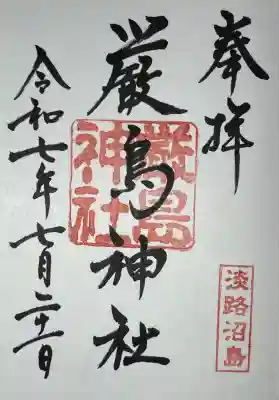 奉拝
厳島神社
厳島
神社
淡路沼島
令和七年七月二十一日